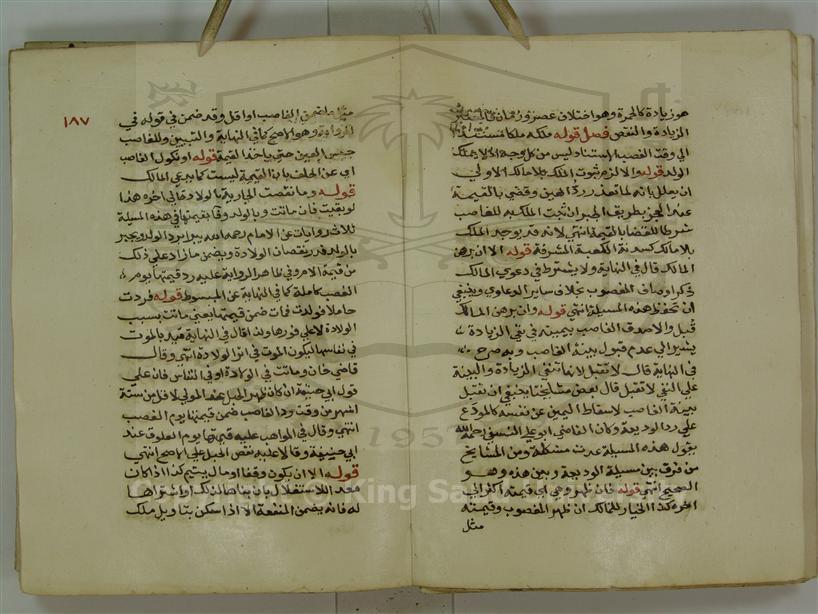 هو زيادة كالحمرة وهو اختلاف عصر وزمان
الزيادة والنقص فصل قوله ملكه ملكا مستندا
الى وقت الغصب استناد ليس من كل وجه لا يملك
الولد قوله والا لزم ثبوت الملك بلا مالك الاولى
ان يعلل بانه لما تعذر رد العين وقضي بالقيمة
عند العجز بطريق الجبر ان تثبت الملك به للغاصب
شرطا للقضا بالقيمة انتهى لانه قد يوجد الملك
بلا مالك كسدنة الكعبة المشرفة قوله الا ان برهن
المالك قال في النهاية ولا يشترط في دعوى المالك
ذكر اوصاف المغصوب بخلاف ساير الدعاوي وينبغي
ان تحفظ هذه المسيلة انتهى قوله وان برهن المالك
قبل والا صدق الغاصب بيمينه في نفي الزيادة
يشير الى عدم قبول بينة الغاصب وبه صرح
في النهاية قال لا تقبل لانها تنفي الزيادة والبينة
على النفي لا تقبل قال بعض مشايخنا ينبغي ان تقبل
بينة الغاصب لاسقاط اليمين عن نفسه كالمودَع
على رد الوديعة وكان القاضي ابو علي النسفي رحمه الله
يقول هذه المسيلة عدت مشكلة ومن المشايخ
من فرق بين مسيلة الوديعة وبين هذه وهو
الصحيح انتهى قوله فان ظهر وهي اي قيمته اكثر الى
اخره كذا الخيار للمالك ان ظهر المغصوب وقيمته
مثل
١٨٧
مثل ما ضمن الغاصب او اقل وقد ضمن في قوله في
الرواية وهو الاصح كما في النهاية والتبيين وللغاصب
حبس العين حتى ياخذ القيمة قوله او نكول الغاصب
اي عن الحلف بان القيمة ليست كما يدعي المالك
قوله وما نقصت الجارية بالولادة الى اخره هذا
لو بقيت فان ماتت وبالولد وفا بقيمتها في هذه المسيلة
ثلاث روايات عن الامام رحمه الله يبرا برد الولد ويجبر
بالولد قدر نقصان الولادة ويضمن ما زاد على ذلك
من قيمة الام وفي ظاهر الرواية عليه رد قيمتها يوم
الغصب كاملة كما في النهاية عن المبسوط قوله فردت
حاملا فولدت فماتت ضمن قيمتها يعني ماتت بسبب
الولادة لا على فورها ولذا قال في النهاية قيد بالموت
في نفاسها ليكون الموت في اثر الولادة انتهى وقال
قاضي خان وماتت في الولادة او في النفاس فان على
قول ابي حنيفة ان كان ظهر الحبل عند المولى لاقل من ستة
اشهر من وقت رد الغاصب ضمن قيمتها يوم الغصب
انتهى وقال في المواهب عليه قيمتها يوم العلوق عند
ابي حنيفة وقالا عليه نقص الحبل على الاصح انتهى
قوله الا ان يكون وقفا او مال يتيم كذا اذا كان
معد اللاستغلال بان بناه لذلك او اشتراها
له فانه يضمن المنفعة الا اذا سكن بتاويل ملك
1957
King Saud University